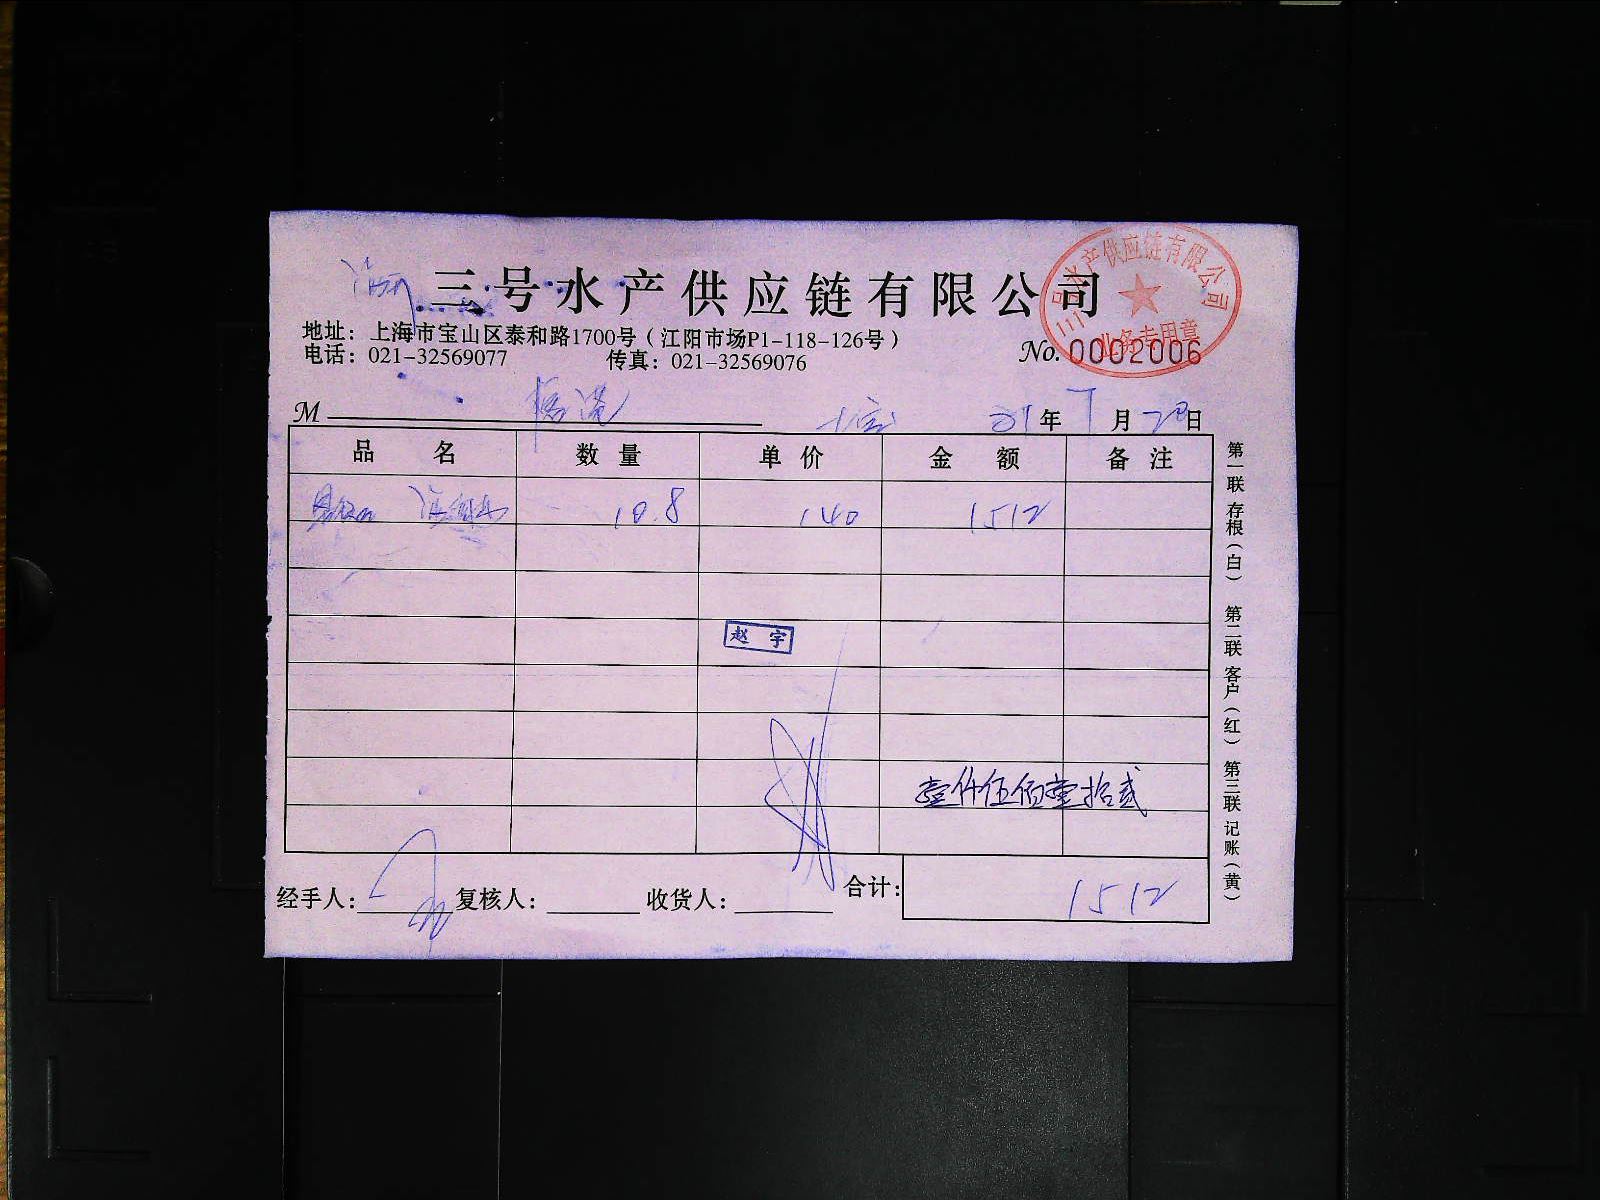 三号水产供应链有限公司
号水产供应链有限公司
业务专用章
地址：上海市宝山区泰和路1700号（江阳市场P1-118-126号）
电话：021-32569077 传真：021-32569076
No. 0002006
M 21年7月28日
品名 数量 单价 金额 备注
10.8 140 1512
赵宇
壹仟伍佰壹拾贰
经手人： 复核人： 收货人： 合计： 1512
第一联 存根（白） 第二联 客户（红） 第三联 记账（黄）